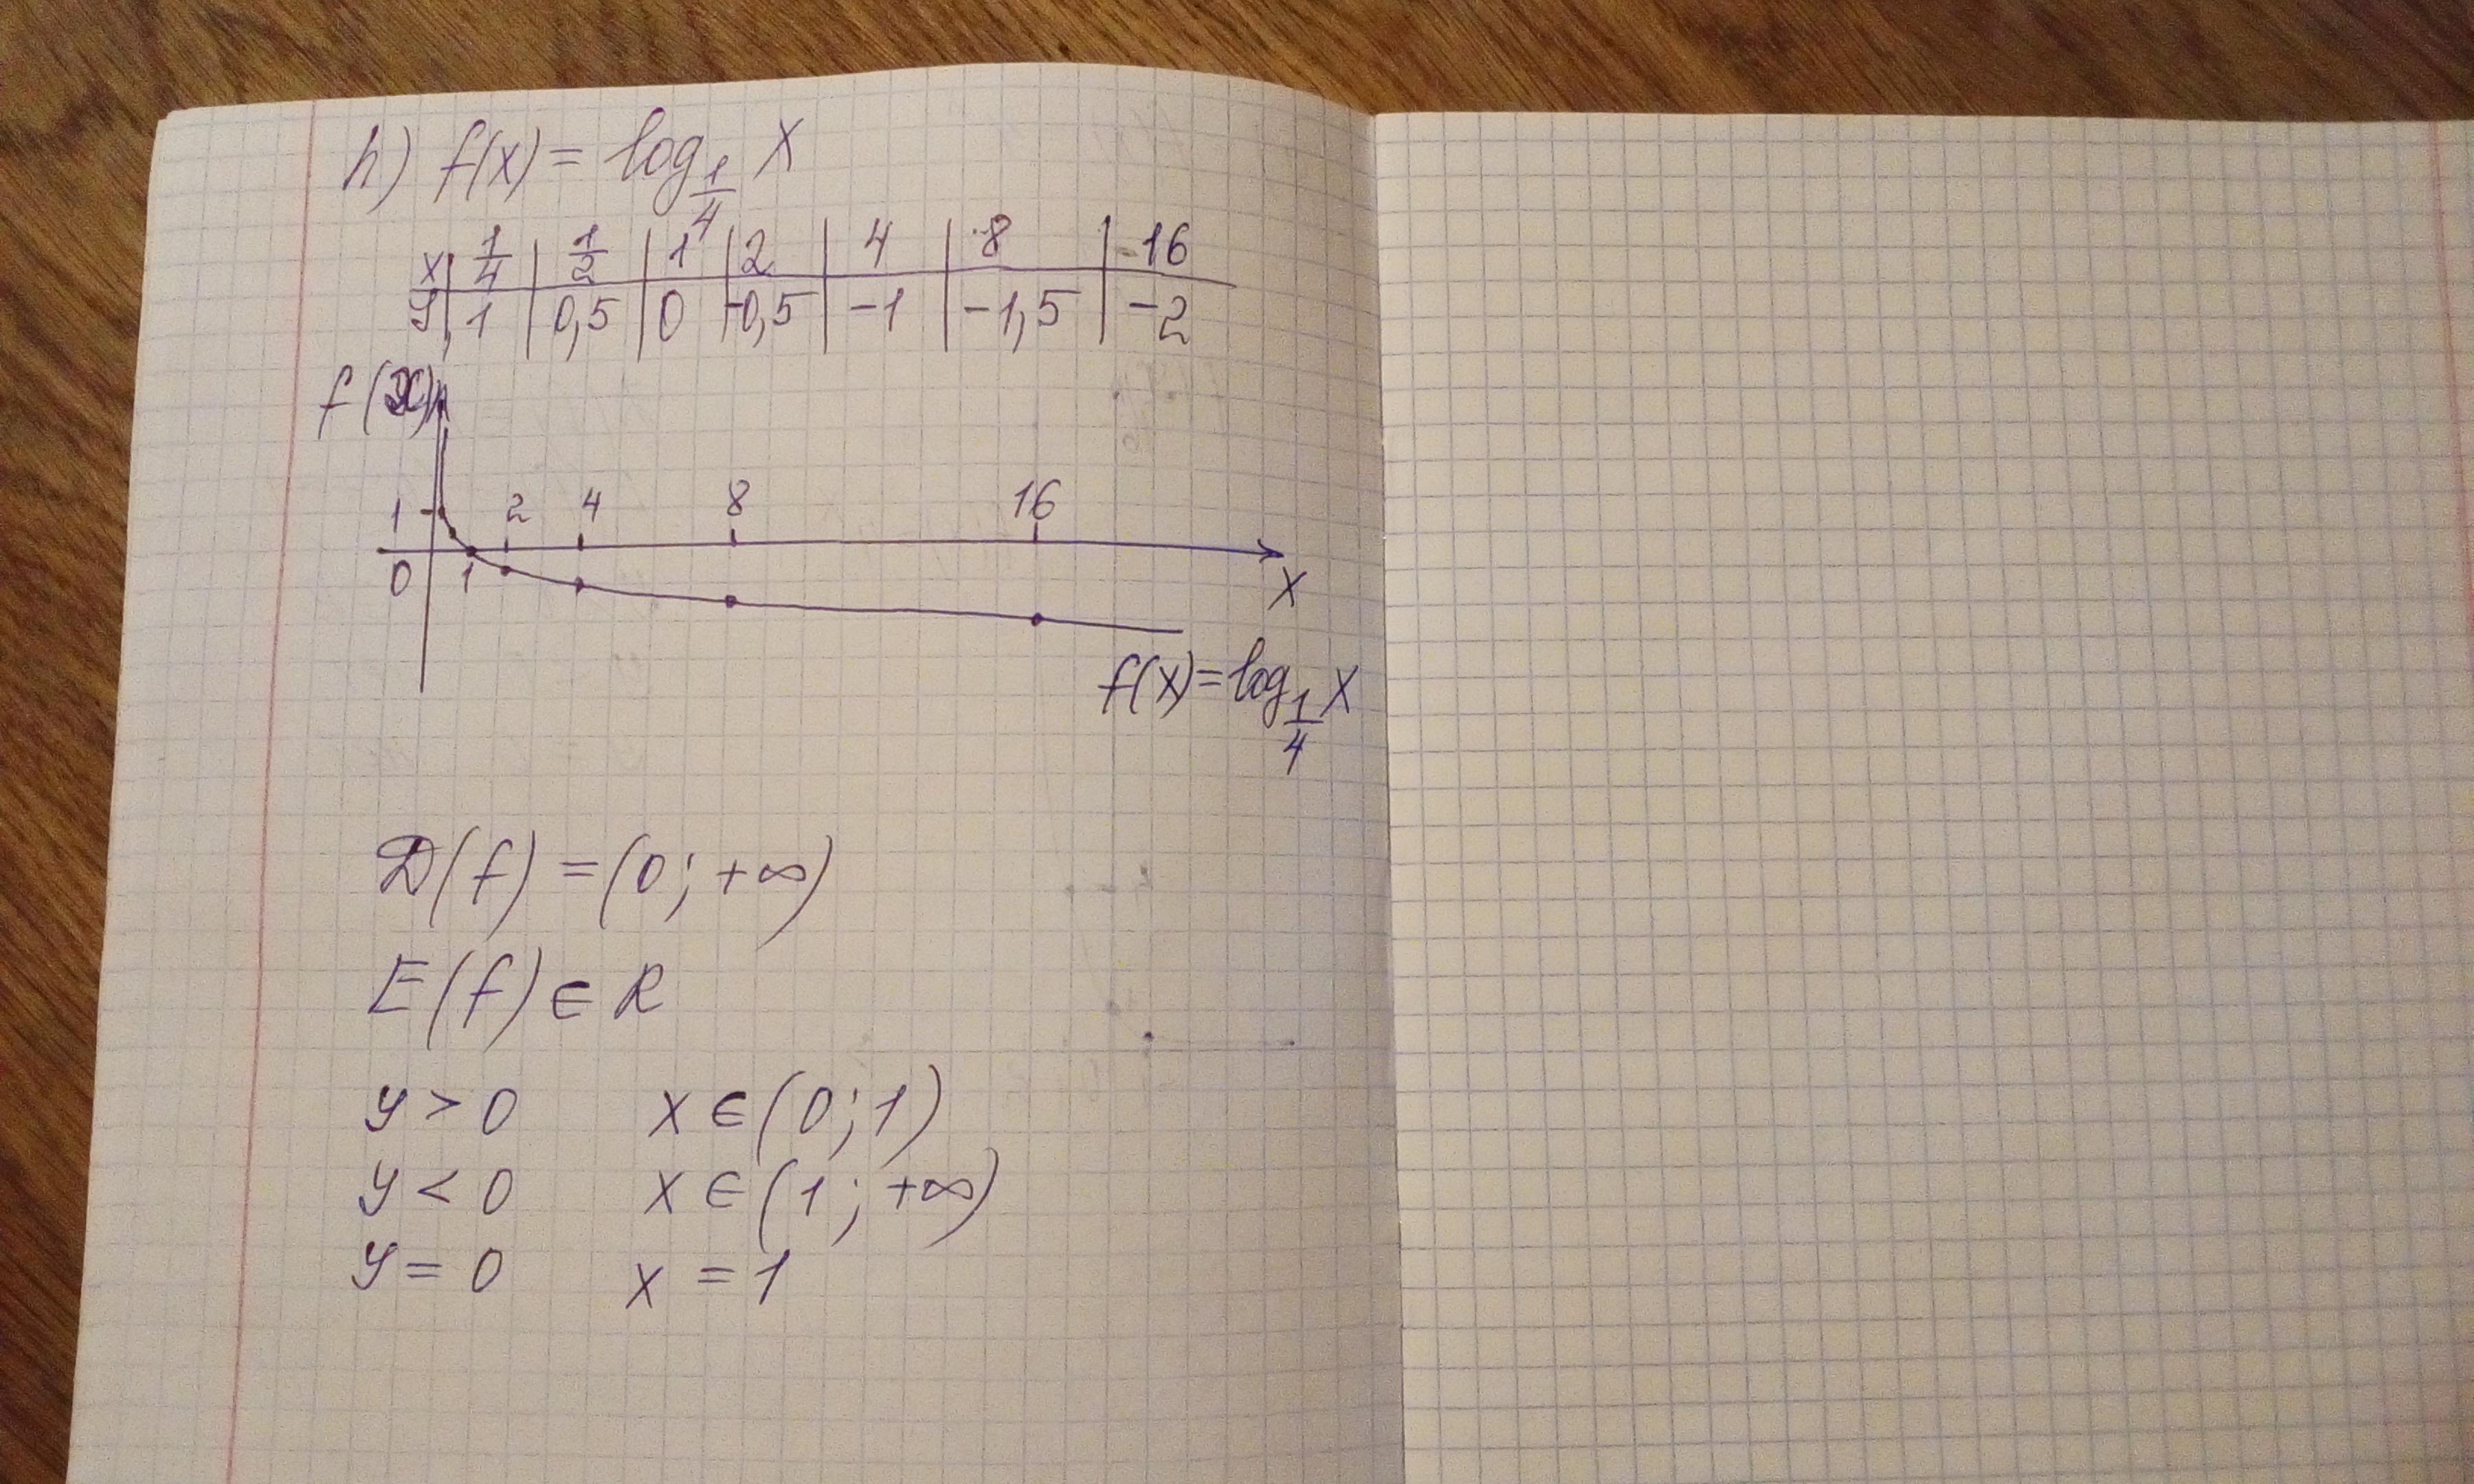 h) f(x) = log 1/4 x
x | 1/4 | 1/2 | 1 | 2 | 4 | 8 | 16
y | 1 | 0,5 | 0 | -0,5 | -1 | -1,5 | -2
f(x)
1 2 4 8 16
0 1 x
f(x) = log 1/4 x
D(f) = (0; +∞)
E(f) ∈ R
y > 0 x ∈ (0; 1)
y < 0 x ∈ (1; +∞)
y = 0 x = 1